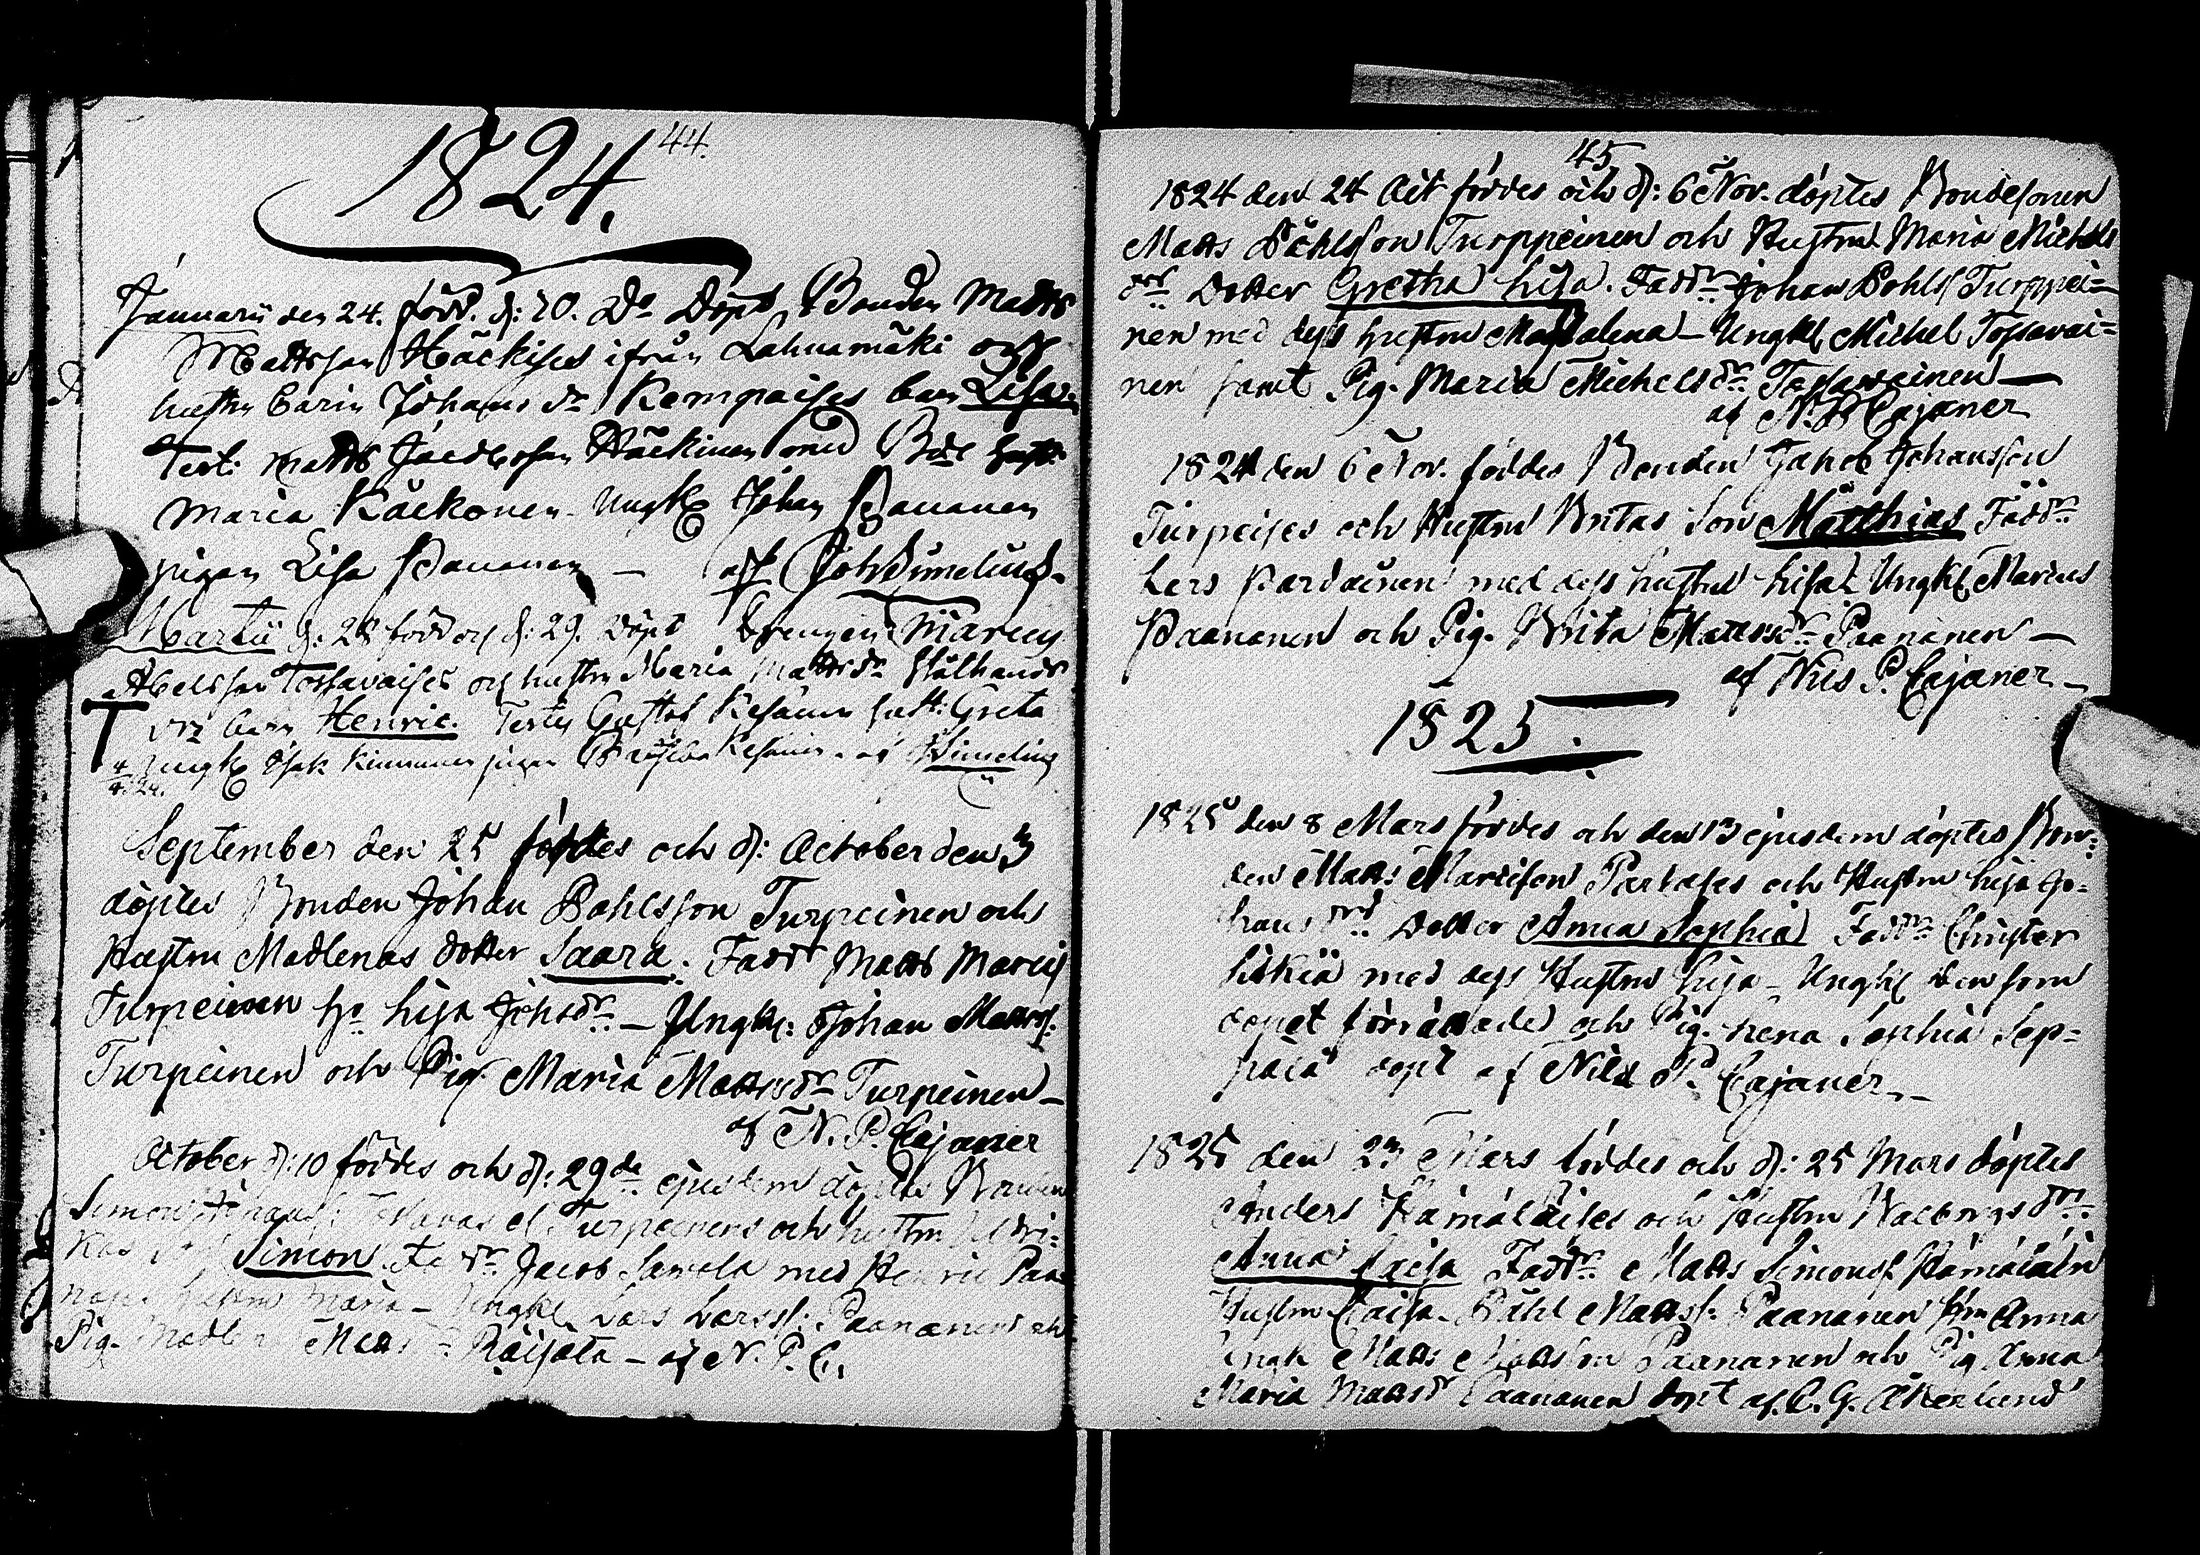 44.
1824.
Januarii den 24. född. d: 20. Do Döpt Bonden Matts
Mattsson Häckises ifrån Lahnamäki och
hustru Carin Johans dr Kempaises barn Lisa.
Test: Matts Jacobsson Häckinen med Bde hust:
Maria Käckonen Ungk Johan Pananen
pigan Lisa Pananen — af Joh Simelius.
Martii d: 28 född och d: 29. Döpt Drengen Marcus
Abelsson Tossavaises och hustru Maria Matts dr
barn Henric. Testes Gustaf Kesäinen hust: Greta
Ungk Isak Kinnunen pigan Kesäinen af Simelius
September den 25 föddes och d: October den 3
döptes Bonden Johan Pahlsson Turpeinen och
Hustru Madlenas dotter Saara. Fadd Matts Marcus
Turpeinen Ho Lisa Johsdr — Ungk: Johan Matts.
Turpeinen och Pig. Maria Mattsdr Turpeinen —
af N. P. Cajaner
October d: 10 föddes och d: 29de ejusdem döptes Bonden
Simon Turpeinens och hustru Ulri=
kas Simon. Jacob Sawola med Henric Paa
hustru Maria — Ungk. Lars Larss: Paananen och
Pig. Räisätä — af N. P. C.
45
1824 den 24 Oct föddes och d: 6 Nov. döptes Bondesonen
Matts Påhlsson Turppeinen och Hustru Maria Michels
drs Dotter Gretha Lisa. Faddr Johan Pohls Turppei=
nen med dess hustru Magdalena — Ungk Michel Tossavai=
nen samt Pig. Maria Michelsdr Tossavainen —
af N. P. Cajaner
1824 den 6 Nov. föddes Bonden Jacob Johansson
Turpeises och Hustru Britas Son Matthias Faddr
Lars Pardainen med dess hustru Lisa Ungk. Marcus
Paananen och Pig. Brita Mattsdr Paananen —
af Nils P. Cajaner —
1825.
1825 den 8 Mars föddes och den 13 ejusdem döptes Bon=
den Matts Martison Partases och Hustru Lisa Jo=
hans drs Dotter Anna Sophia Faddr Christer
Liskiä med dess Hustru Lisa — Ungk den som
dopet förrättade och Pig. Lena Sophia Sep=
pälä döpt af Nils P. Cajaner —
1825 den 23 Mars föddes och d: 25 Mars döptes
Anders Hämäläises och Hustru Walborgs dr
Anna Caisa Faddr Matts Simons. Hämäläin
Hustru Caisa. Påhl Matts: Paananen Hru Anna
Ungk Matts Mattsson Paananen och Pig Anna
Maria Mattsdr Paananen döpt af. C. G. Åkerlund